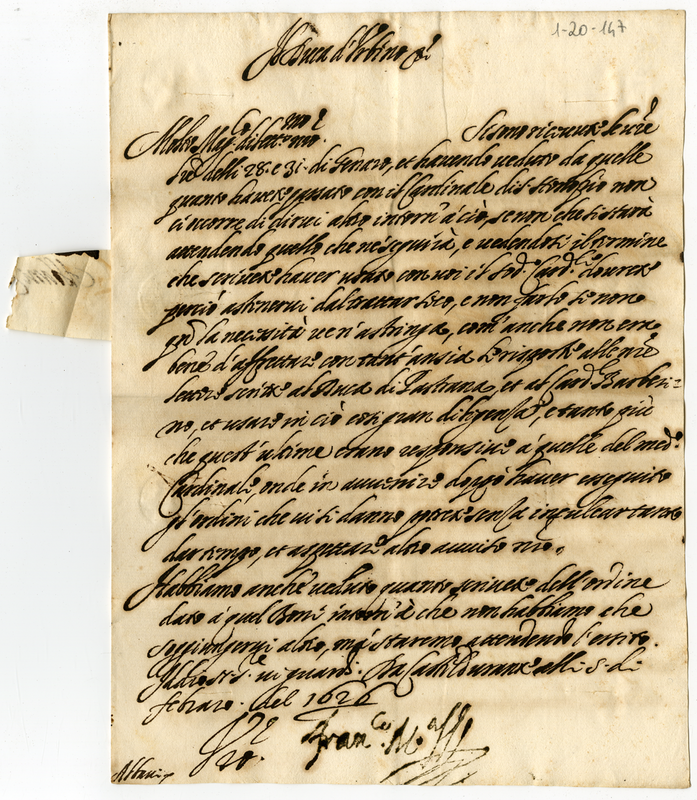 1-20-147
Il Duca d'Urbino &c
Molto Mag.co di lett.mo n.ro
Si sono ricevute le v.re
due delli 28. e 31. di Genaro, et havendo veduto da quelle
quanto havete passato con il Cardinale di S. non
ci occorre di dirvi altro intorn'à ciò, se non che si starà
attendendo quello che ne seguirà, e vedendosi il termine
che scrivete haver usato con voi il Card.le
perciò astenervi dal trattar seco, e non farlo se non
q.do la necessità ve n'astringa, com'anche non era
bene d'affettare con tant'ansia le risposte alle n.re
lettere scritte al Duca di Pastrana, et al Card. Barberi-
no, et usare in ciò così gran diligenza, e tanto più
che quest'ultime erano responsive à quelle del med.o
Cardinale, onde in avvenire doppò haver esseguito
gl'ordini che vi si danno potrete senza inculcar tanto
dar tempo, et aspettare altro avviso n.ro.
Habbiamo anche veduto quanto scrivete dell'ordine
dato à quel intorn'à che non habbiamo che
soggiungervi altro, mà staremo attendendo l'essito.
Iddio N.S.re vi guardi. Da Castel Durante alli 5. di
Febraro. del 1626
Fran.co M.a